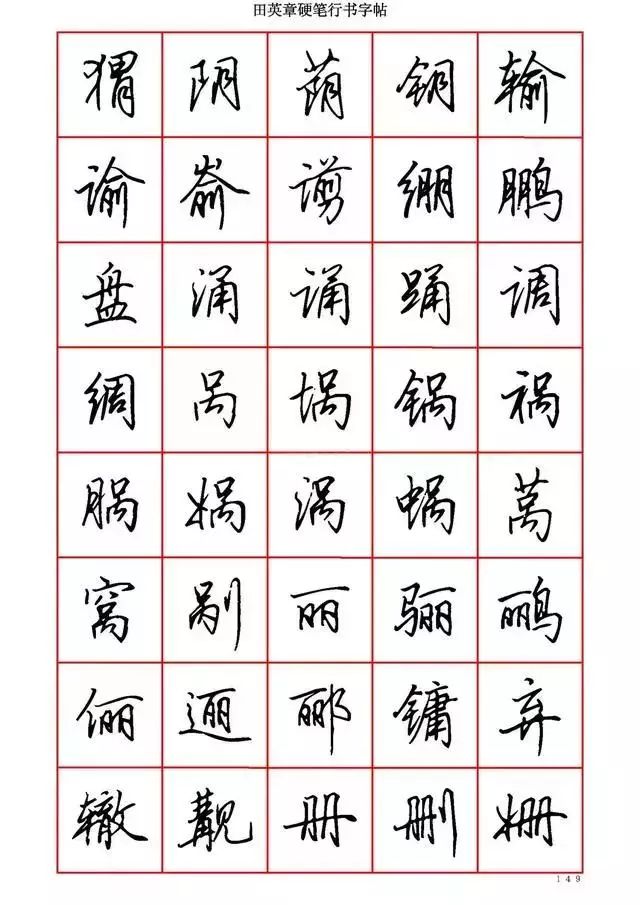 田英章硬笔行书字帖
猬阴荫钥输
谕嵛谫绷鹏
盘涌诵踊调
绸呙埚锅祸
脶娲涡蜗莴
窝剐丽骊鹂
俪逦郦镛弃
辙觏册删姗
149